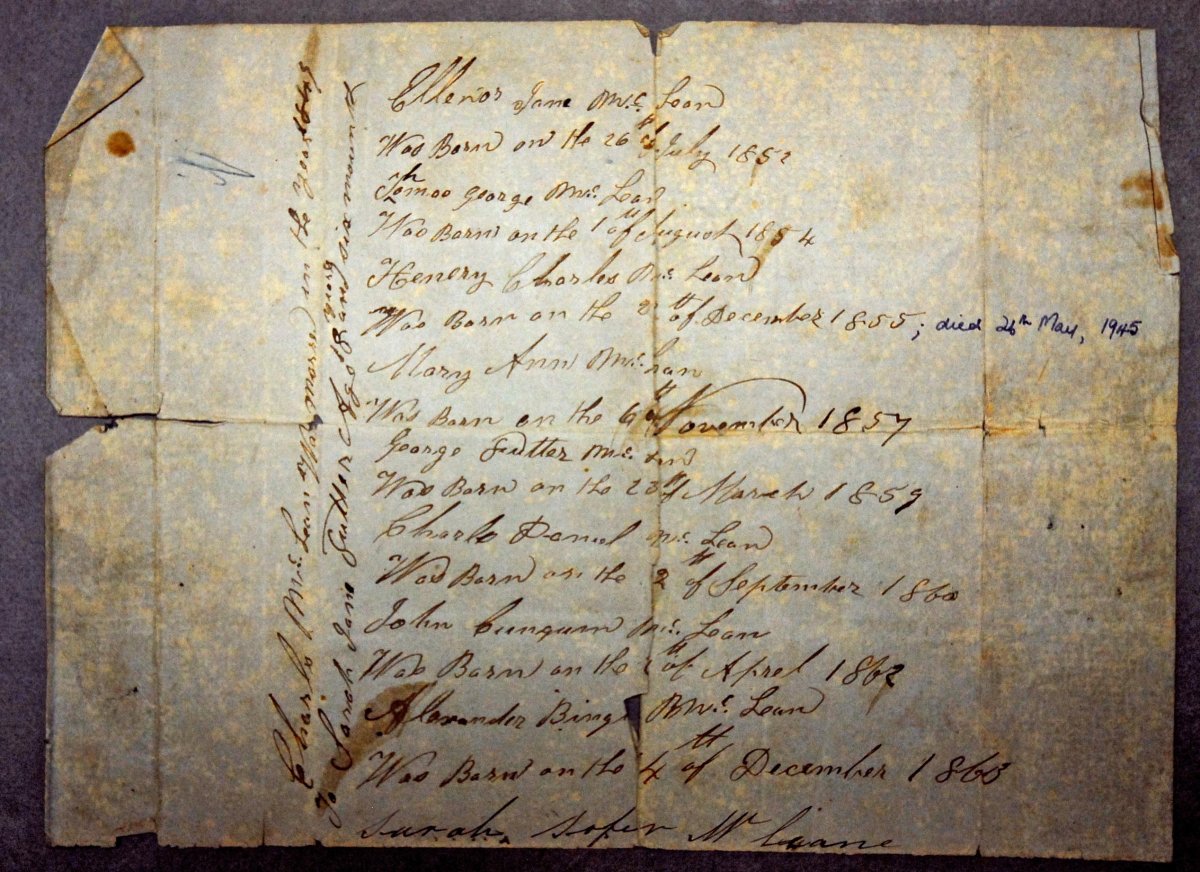 Ellenor Jane Mc. Lean
Was Born on the 26th of July 1852
Thomas George Mc. Lean
Was Born on the 1st of August 1854
Henery Charles Mc. Lean
Was Born on the 2 th of December 1855; died 26th May, 1945
Mary Ann Mc. Lean
Was Born on the 9th of November 1857
George Sutter Mc. Lean
Was Born on the 28th of March 1859
Charls Daniel Mc. Lean
Was Born on the 2th of September 1860
John Mc. Lean
Was Born on the th of Aprel 1862
Alexander Mc. Lean
Was Born on the 4th of December 1863
Sarah Mc
Charls Mc. Lean Was married in the year 1849
To Sarah Jane Sutter Age and six month